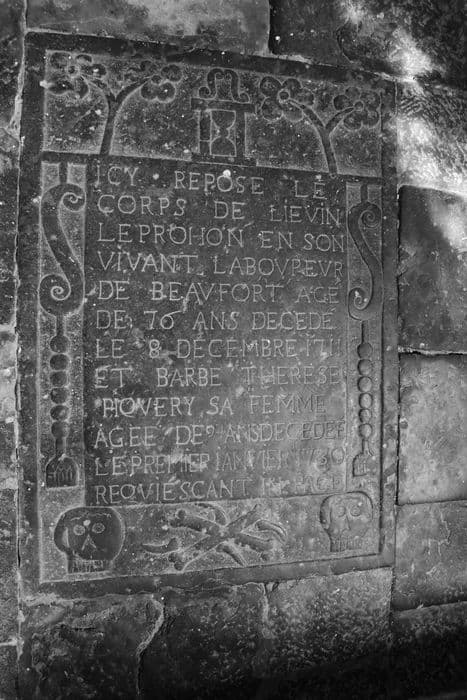 ICY REPOSE LE
CORPS DE LIEVIN
LEPROHON EN SON
VIVANT LABOVREVR
DE BEAVFORT AGÉ
DE 76 ANS DECEDÉ
LE 8 DÉCEMBRE 1711
ET BARBE THERESE
PIOVERY SA FEMME
AGÉE DE ANS DECEDEE
LE PREMIER IANVIER 1730
REQUIÉSCANT IN PACE